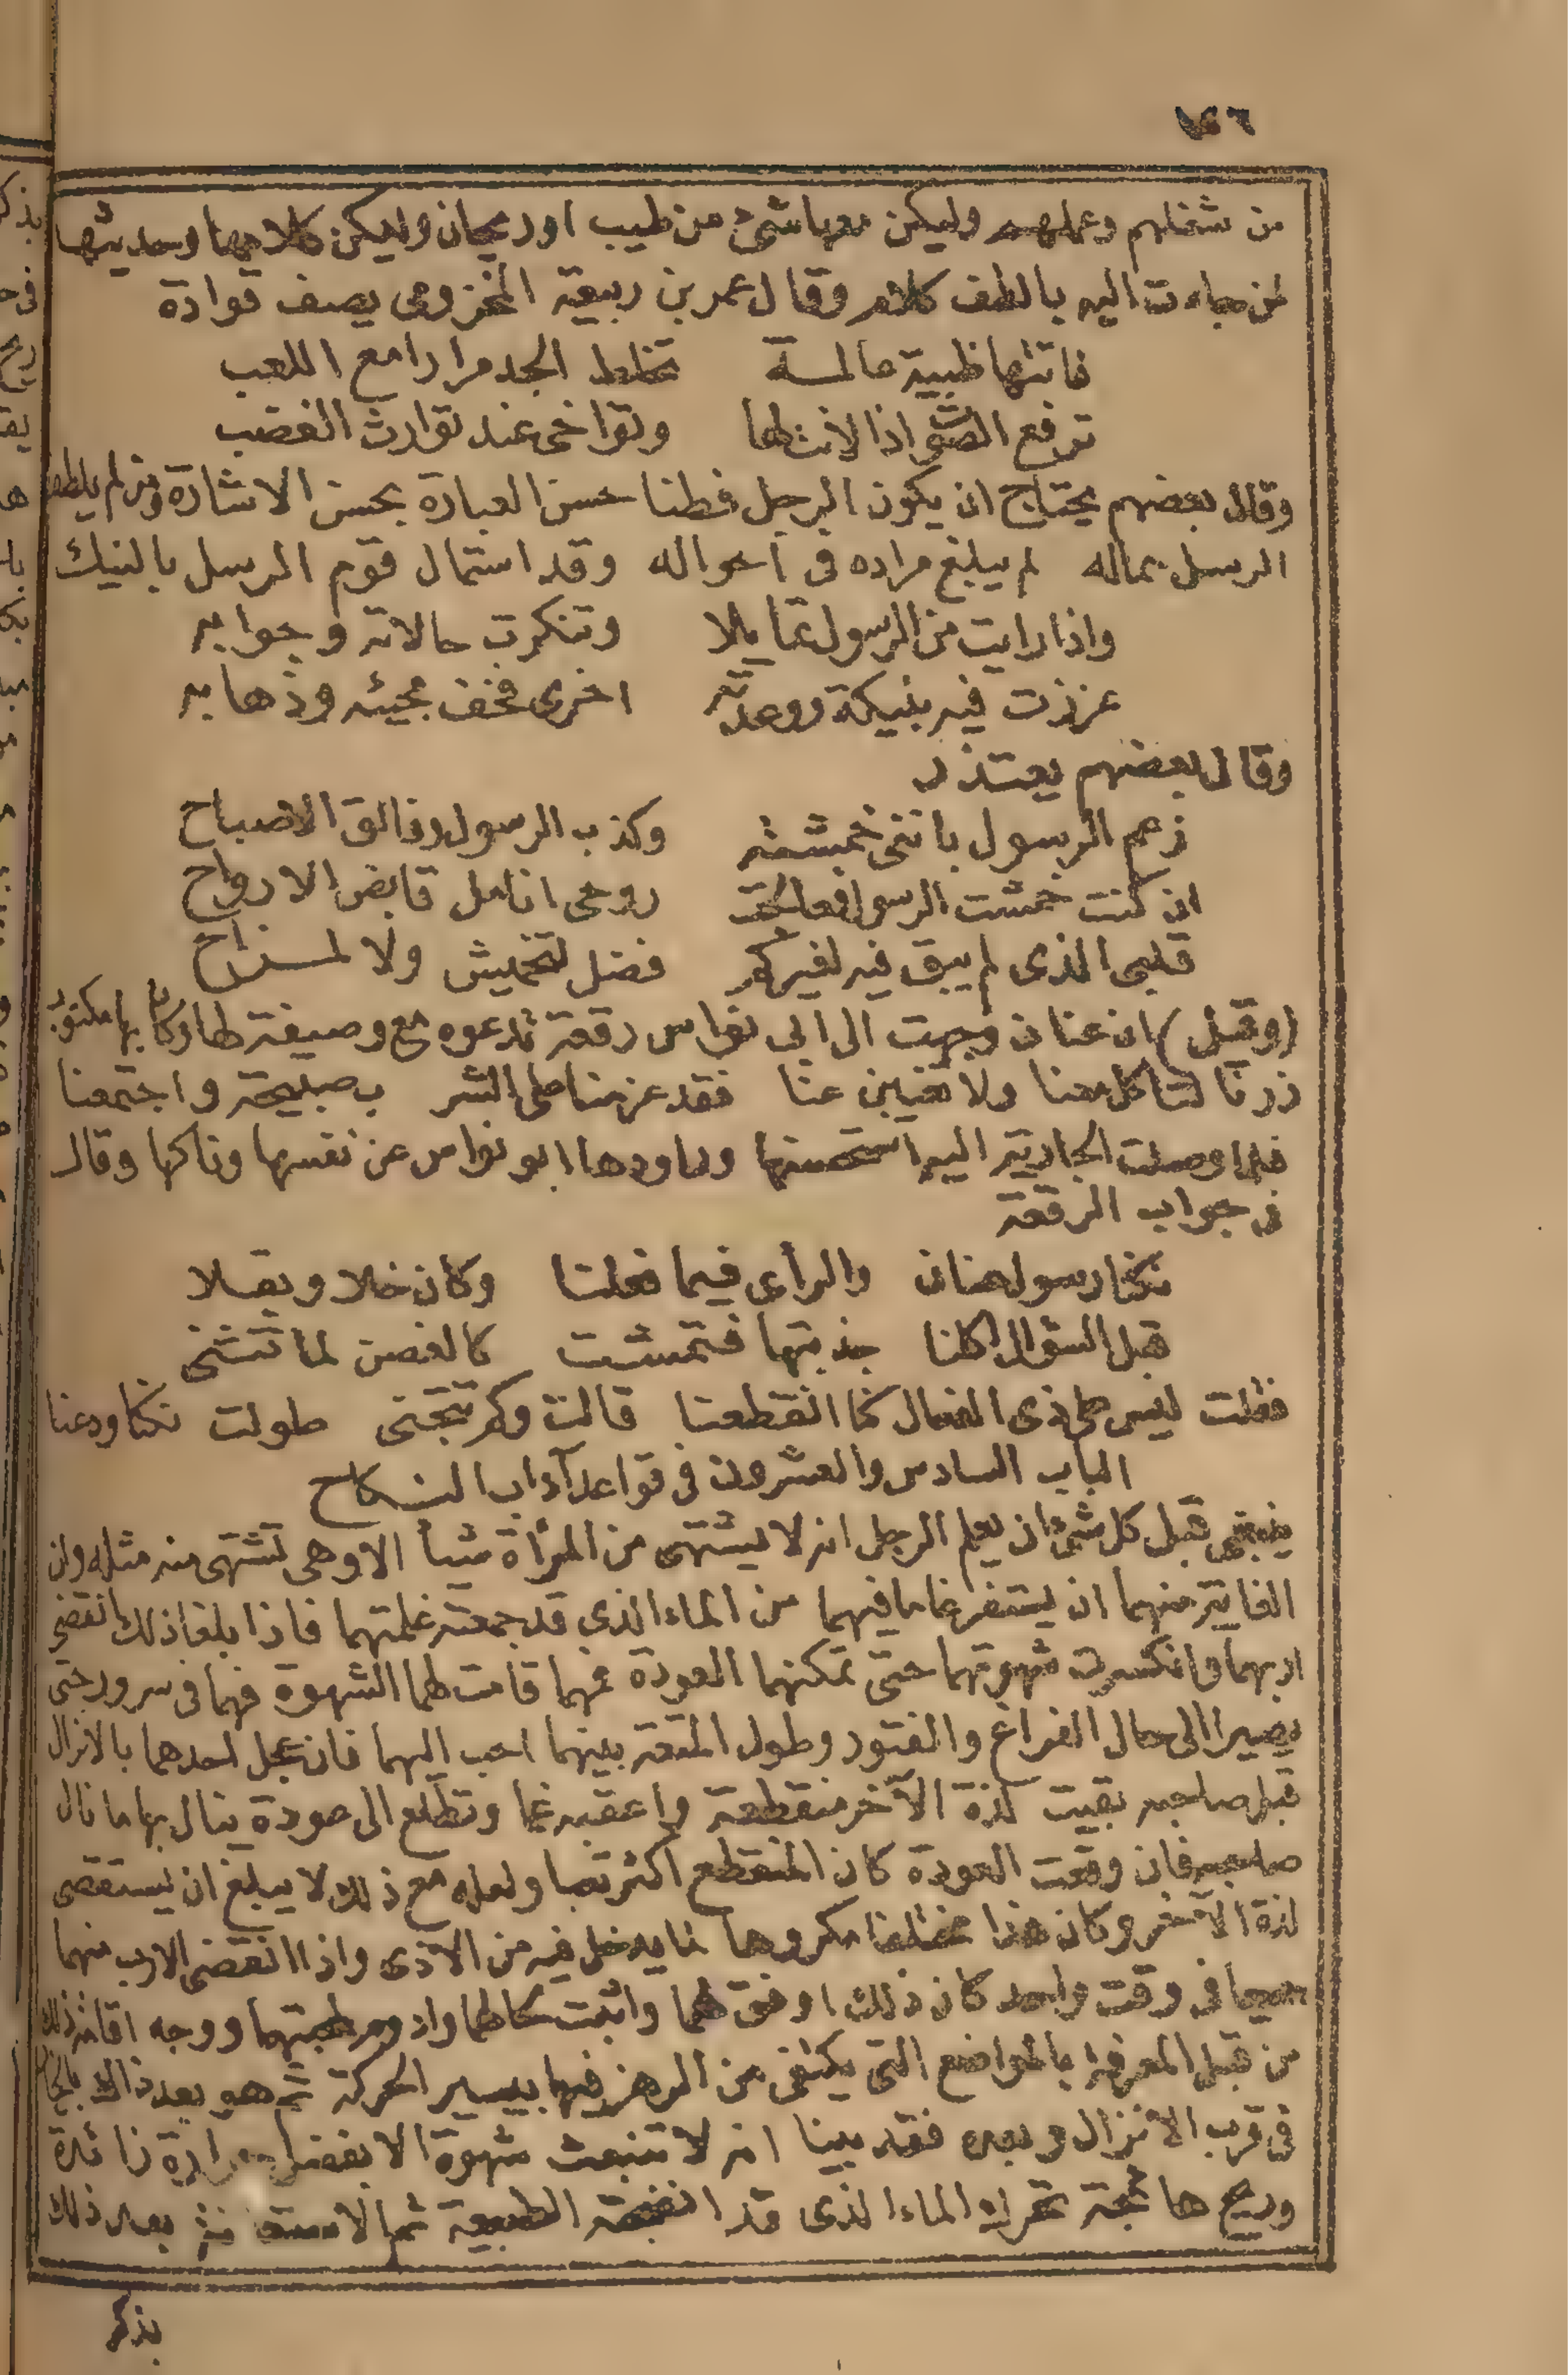 من شغلهم وعملهم وليكن معها شئ من طيب او ريحان وليكن كلامها وحديثها
لمن جاءت اليه بالطف كلام وقال عمر بن ربيعة المخزومى يصف قوادة
فاتتها طبية عالمة تخلط الجد مرارا مع اللعب
ترفع الصوت اذا لانت لها وتراخى عند توارث الغضب
وقال بعضهم يحتاج ان يكون الرجل فطنا حسن العبارة بحسن الاشارة ومن لم يلطف
الرسل بماله لم يبلغ مراده فى احواله وقد استمال قوم الرسل بالنيك
واذا رايت من الرسول تمايلا وتنكرت حالاته وجوابه
عززت فيه بنيكة ووعدته اخرى فخف مجيئه وذهابه
وقال بعضهم يعتذر
زعم الرسول باننى خمشته وكذب الرسول وفالق الاصباح
ان كنت خمشت الرسول فعالجت روحى انامل قابض الارواح
قلبى الذى لم يبق فيه لغيركم فضل لتخميش ولا لمزاح
(وقيل) ان عنان وجهت الى ابى نواس رقعة تدعوه مع وصيفة لها وكان بها مكتوب
زرنا لتاكل معنا ولا تغيبن عنا فقد عزمنا على الشر ب صبيحة واجتمعنا
فلما وصلت الجارية اليه استحسنها وراودها ابو نواس عن نفسها وناكها وقال
فى جواب الرقعة
نكنا رسول عنان والرأى فيما فعلنا وكان خلا وبقلا
قبل السؤال اكلنا جذبتها فتمشت كالغصن لما تثنى
فقلت ليس على ذى الفعال كما انقطعنا قالت وكم تتجنى طولت نكنا ودعنا
الباب السادس والعشرون فى قواعد آداب النكاح
ينبغى قبل كل شئ ان يعلم الرجل انه لا يشتهى من المرأة شيأ الا وهى تشتهى منه مثله وان
الغاية منهما ان يستفرغا ما فيهما من الماء الذى قد جمعته غلمتهما فاذا بلغا ذلك انقضى
اربهما وانكسرت شهوتهما حتى تمكنهما العودة فمهما قامت لهما الشهوة فهما فى سرور حتى
يصيرا الى حال الفراغ والفتور وطول المتعة بينهما احب اليهما فان عجل احدهما بالانزال
قبل صاحبه بقيت لذة الآخر منقطعة واعقبه غما وتطلع الى عودة ينال بها ما نال
صاحبه فان وقعت العودة كان المنقطع اكثر تعبا ولعله مع ذلك لا يبلغ ان يستقصى
لذة الآخر وكان هذا مختلفا مكروها لما يدخل فيه من الاذى واذا انقضى الارب منهما
جميعا فى وقت واحد كان ذلك اوفق لهما واثبت لحالهما وادوم لمحبتهما ووجه اقامة ذلك
من قبل المعرفة بالمواضع التى يكتفى من الرهز فيها بيسير الحركة ثم هو بعد ذلك
فى قرب الانزال وبعده فقد بينا انه لا تنبعث شهوة الا بفضل حرارة زائدة
وريح هائجة تحرك الماء الذى قد انضجته الطبيعة ثم بعد ذلك
بذكر